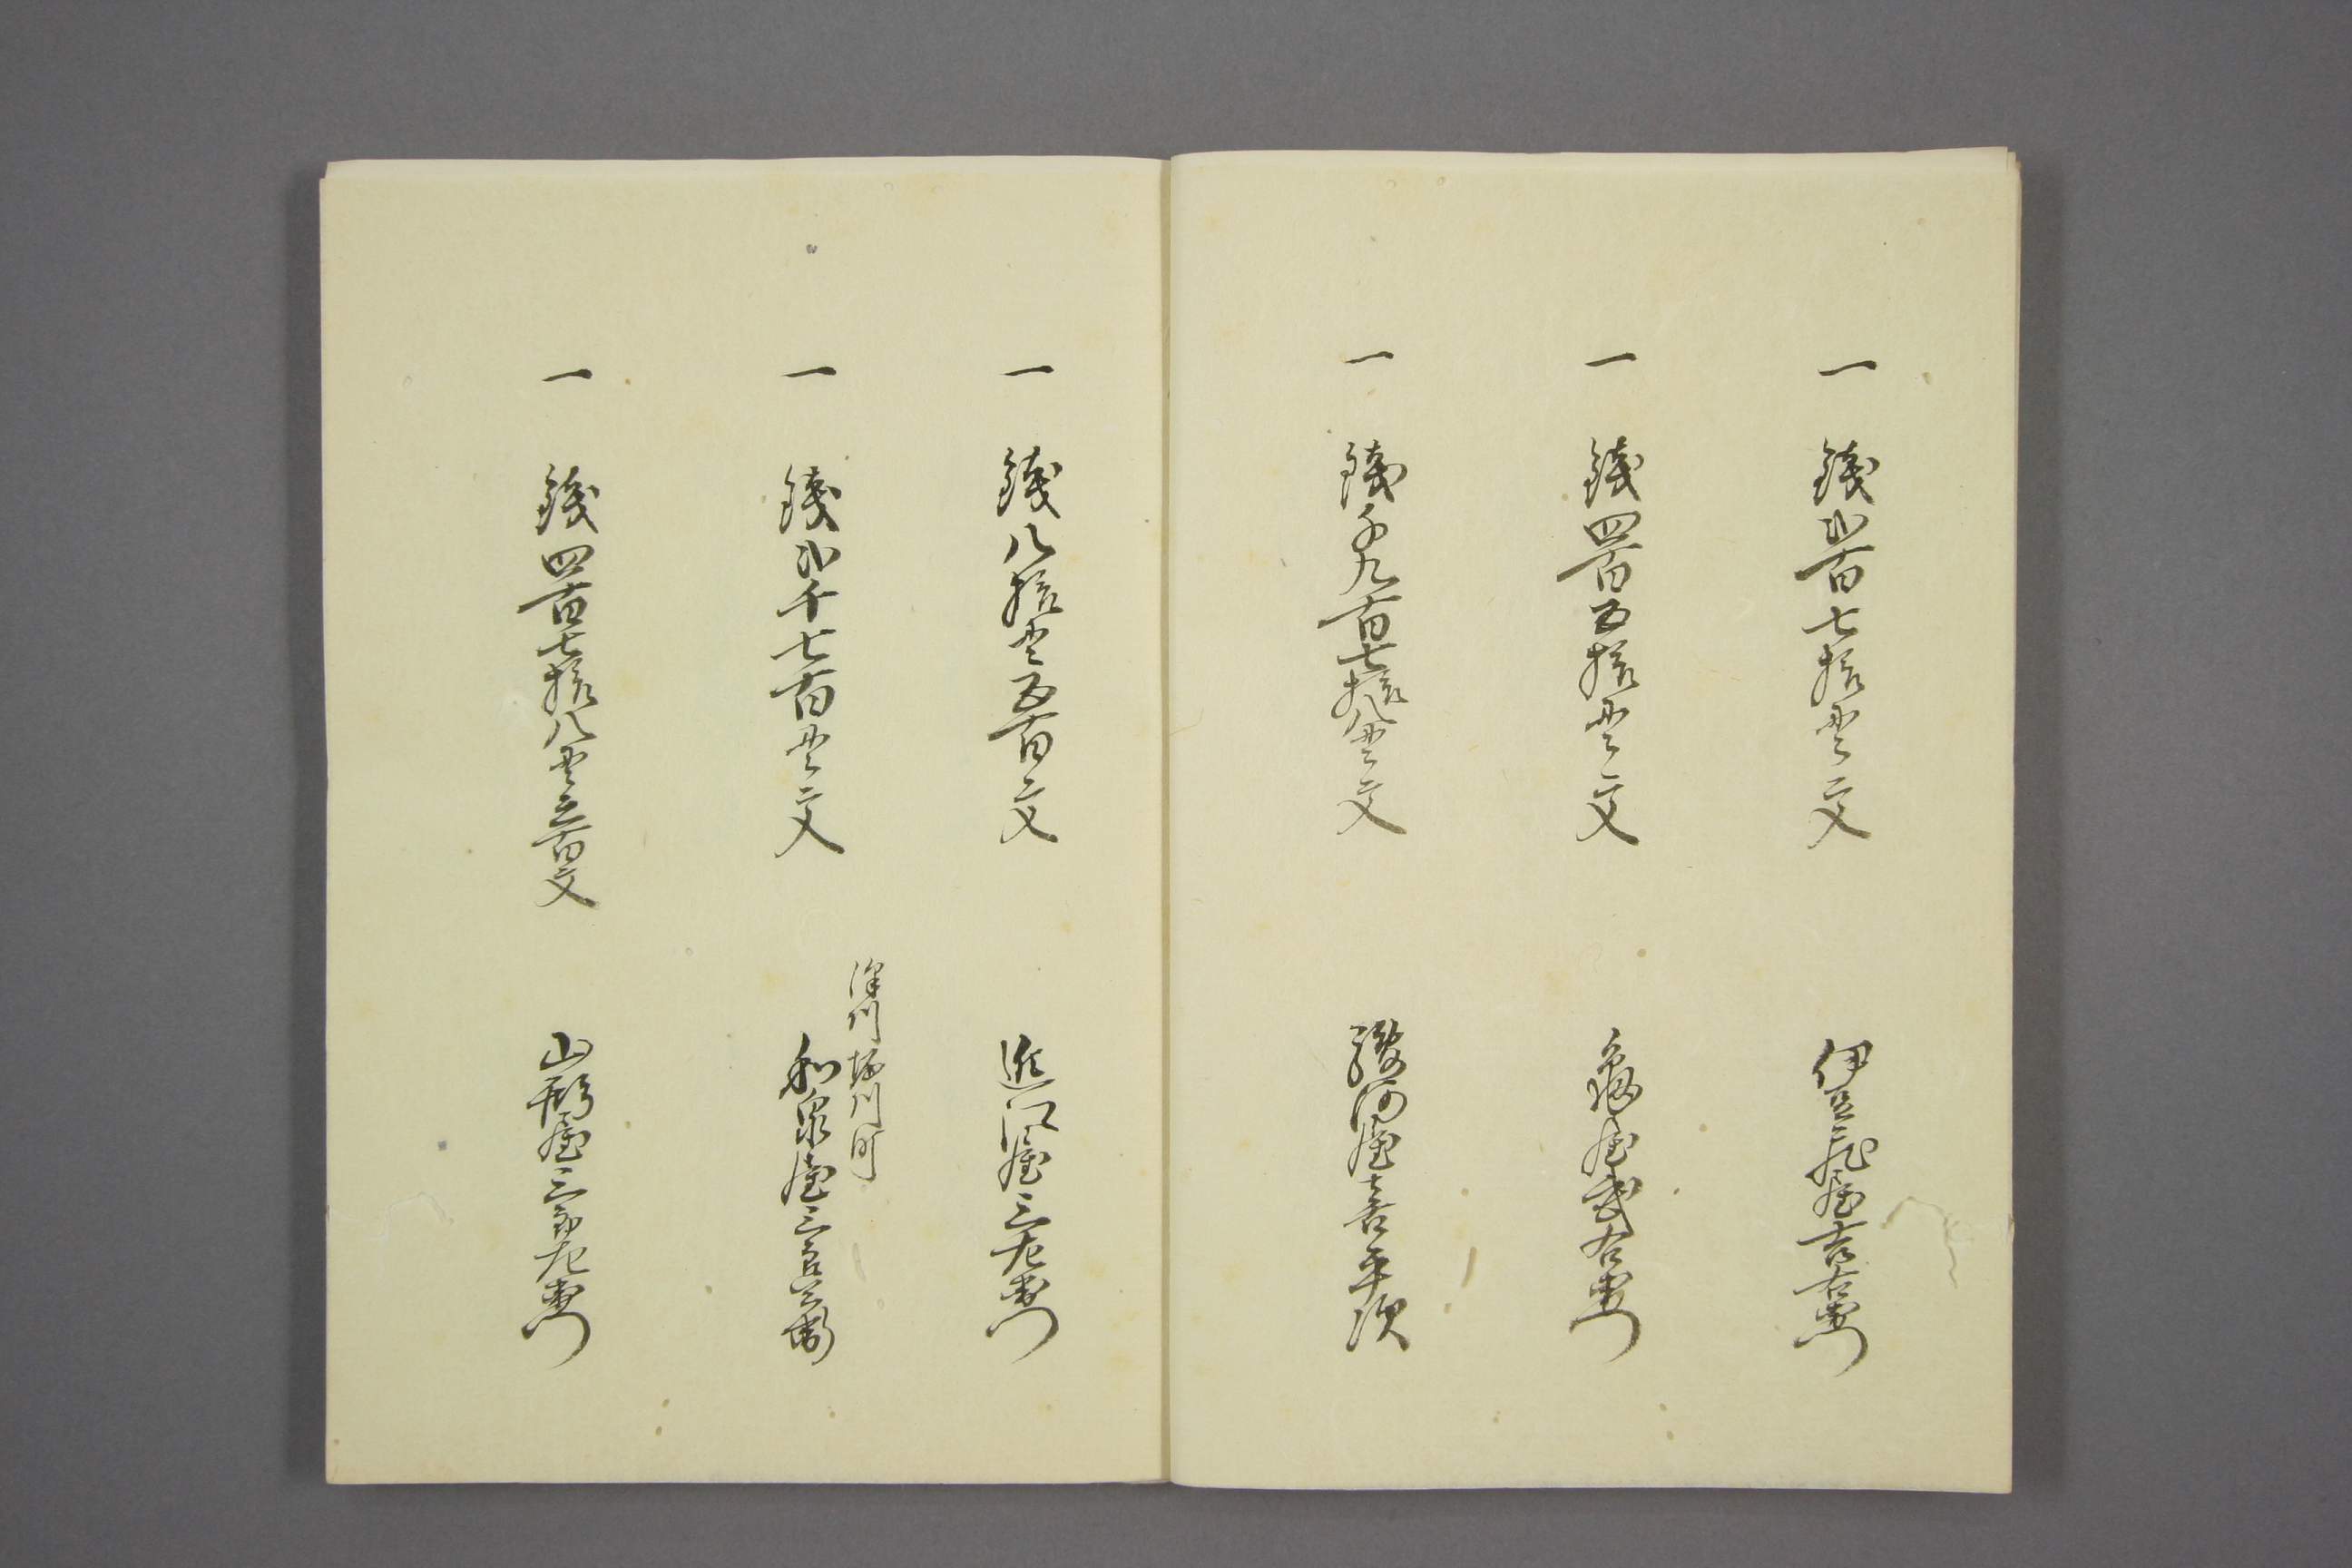 一 銭弐百七拾貫文 伊豆屋吉右衛門
一 銭四百五拾貫文 亀屋武右衛門
一 銭千九百七拾八貫文 駿河屋喜平次
一 銭八拾貫五百文 近江屋三左衛門
深川極川町
一 銭弐千七百貫文 和泉屋三郎兵衛
一 銭四百七拾八貫三百文 山形屋三郎左衛門